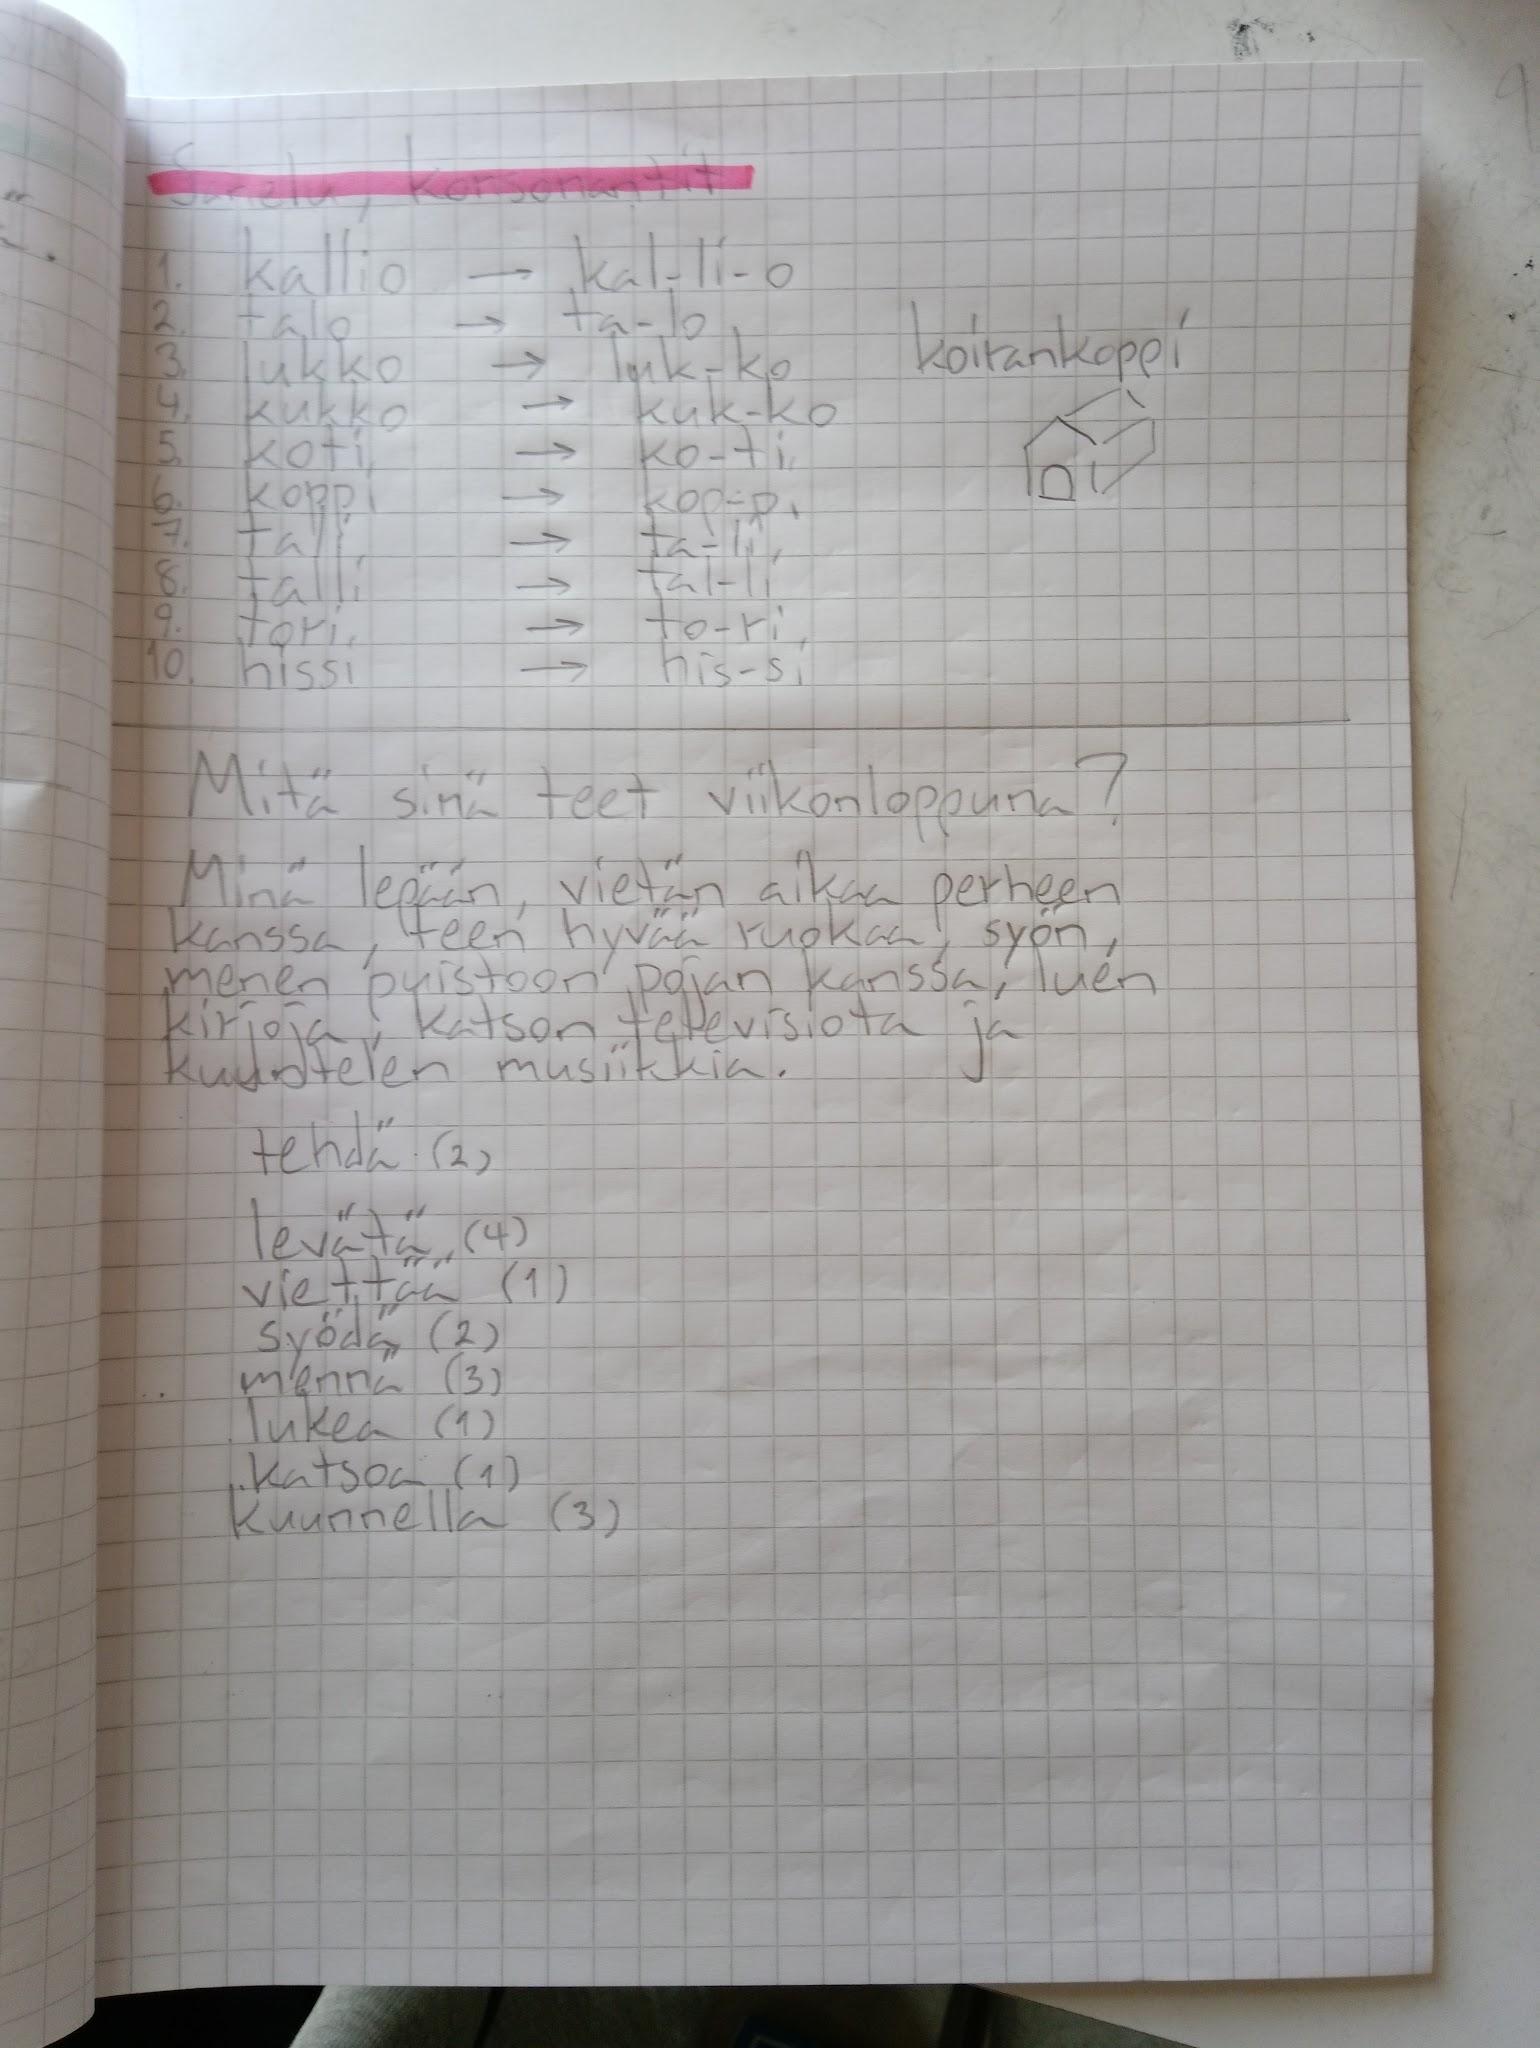 Sanelu, konsonantit
1. kallio → kal-li-o
2. talo → ta-lo
3. lukko → luk-ko
koirankoppi
4. kukko → kuk-ko
5. koti → ko-ti
6. koppi → kop-pi
7. tali → ta-li
8. talli → tal-li
9. tori → to-ri
10. hissi → his-si
Mitä sinä teet viikonloppuna?
Minä lepään, vietän aikaa perheen
kanssa, teen hyvää ruokaa, syön,
menen puistoon pojan kanssa, luen
kirjoja, katson televisiota ja
kuuntelen musiikkia.
tehdä (2)
levätä (4)
viettää (1)
syödä (2)
mennä (3)
lukea (1)
katsoa (1)
kuunnella (3)